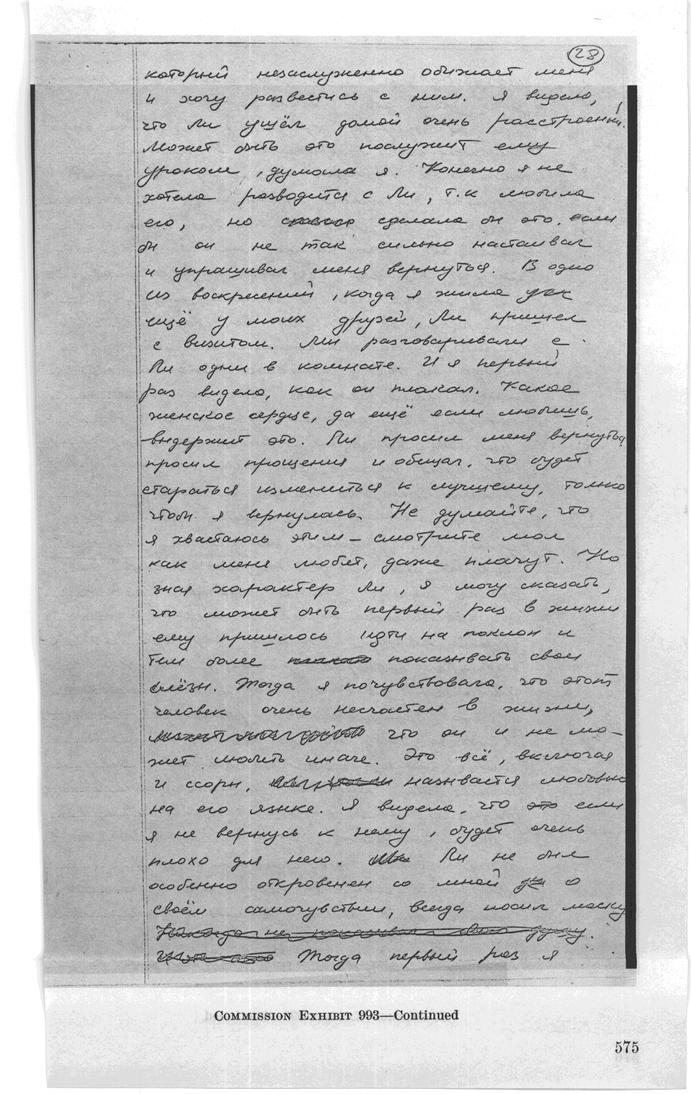 28
который незаслуженно обижает меня
и хочу развестись с ним. я видела,
что Ли ушёл домой очень расстроеный.
Может быть это послужит ему
уроком, думала я. Конечно я не
хотела разводится с Ли, т.к любила
его, но сделала бы это, если
бы он не так сильно настаивал
и упрашивал меня вернуться. В одно
из воскресений, когда я жила
ещё у моих друзей, Ли пришел
с визитом. Мы разговаривали с
Ли одни в комнате. И я первый
раз видела, как он плакал. Какое
женское сердце, да ещё если любишь,
выдержит это. Ли просил меня вернуться
просил прощения и обещал, что будет
стараться измениться к лучшему, только
чтобы я вернулась. Не думайте, что
я хвастаюсь этим – смотрите мол
как меня любят, даже плачут. Но
зная характер Ли, я могу сказать,
что может быть первый раз в жизни
ему пришлось идти на поклон и
тем более показывать свои
слёзы. Тогда я почувствовала, что этот
человек очень несчастен в жизни,
что он и не мо-
жет любить иначе. Это всё, включая
и ссоры, называется любовью
на его языке. Я видела, что это если
я не вернусь к нему, будет очень
плохо для него. Ли не был
особенно откровенен со мной о
своём самочувствии, всегда носил маску
Никогда не показывал свою душу.
Тогда первый раз я
COMMISSION EXHIBIT 993—Continued
575